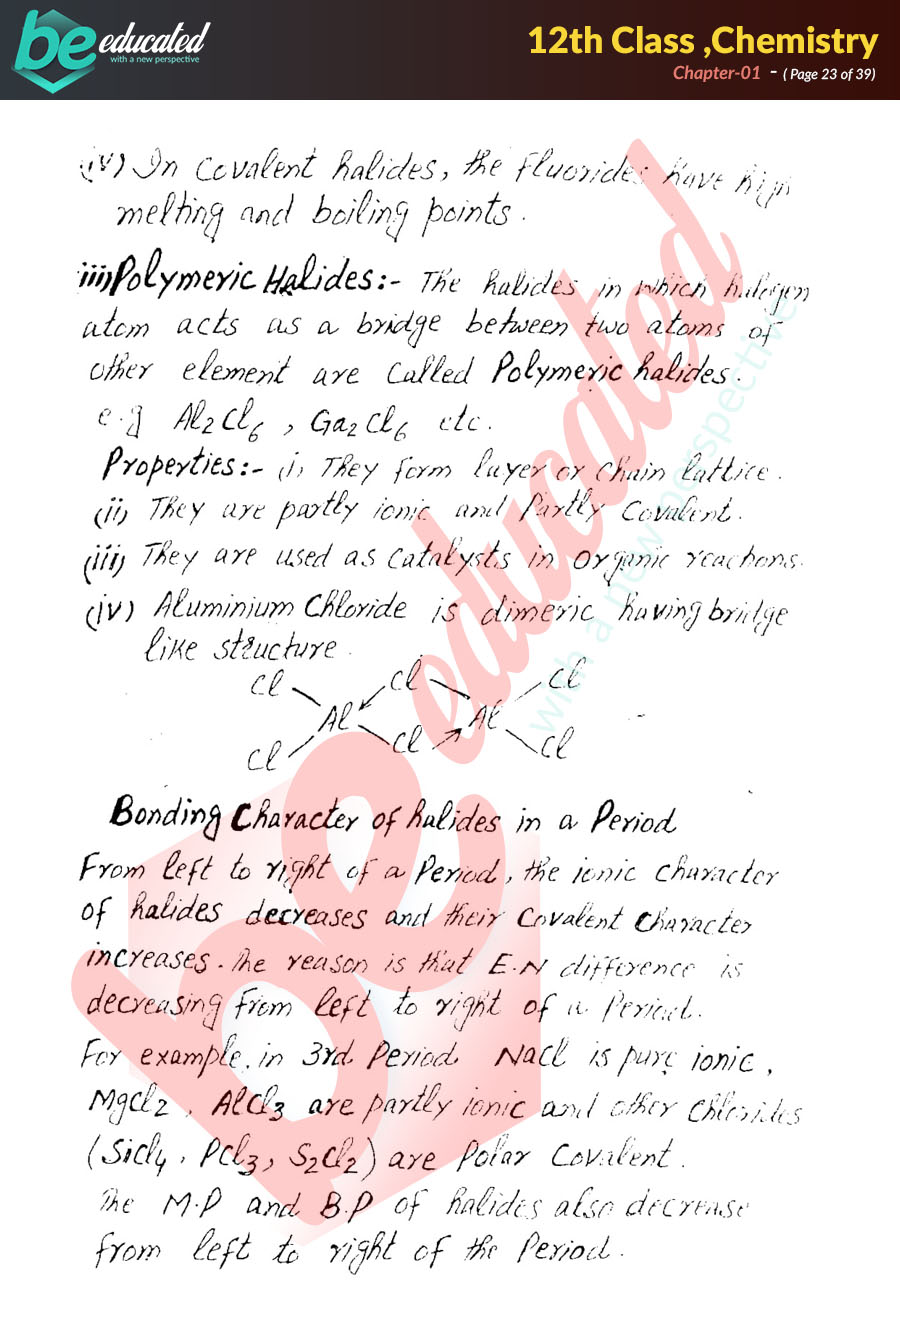 be educated
with a new perspective
12th Class ,Chemistry
Chapter-01 - ( Page 23 of 39)
(iv) In Covalent halides, the Fluorides have high
melting and boiling points.
iii) Polymeric Halides:- The halides in which halogen
atom acts as a bridge between two atoms of
other element are called Polymeric halides.
e.g Al2Cl6 , Ga2Cl6 etc.
Properties:- (i) They form layer or chain lattice.
(ii) They are partly ionic and Partly Covalent.
(iii) They are used as catalysts in organic reactions.
(iv) Aluminium Chloride is dimeric having bridge
like structure.
Cl Cl Cl
Al Al
Cl Cl Cl
Bonding Character of halides in a Period
From left to right of a Period, the ionic character
of halides decreases and their Covalent Character
increases. The reason is that E.N difference is
decreasing from left to right of a Period.
For example, in 3rd Period NaCl is pure ionic,
MgCl2, AlCl3 are partly ionic and other Chlorides
(SiCl4, PCl3, S2Cl2) are Polar Covalent.
The M.P and B.P of halides also decrease
from left to right of the Period.
be educated
with a new perspective